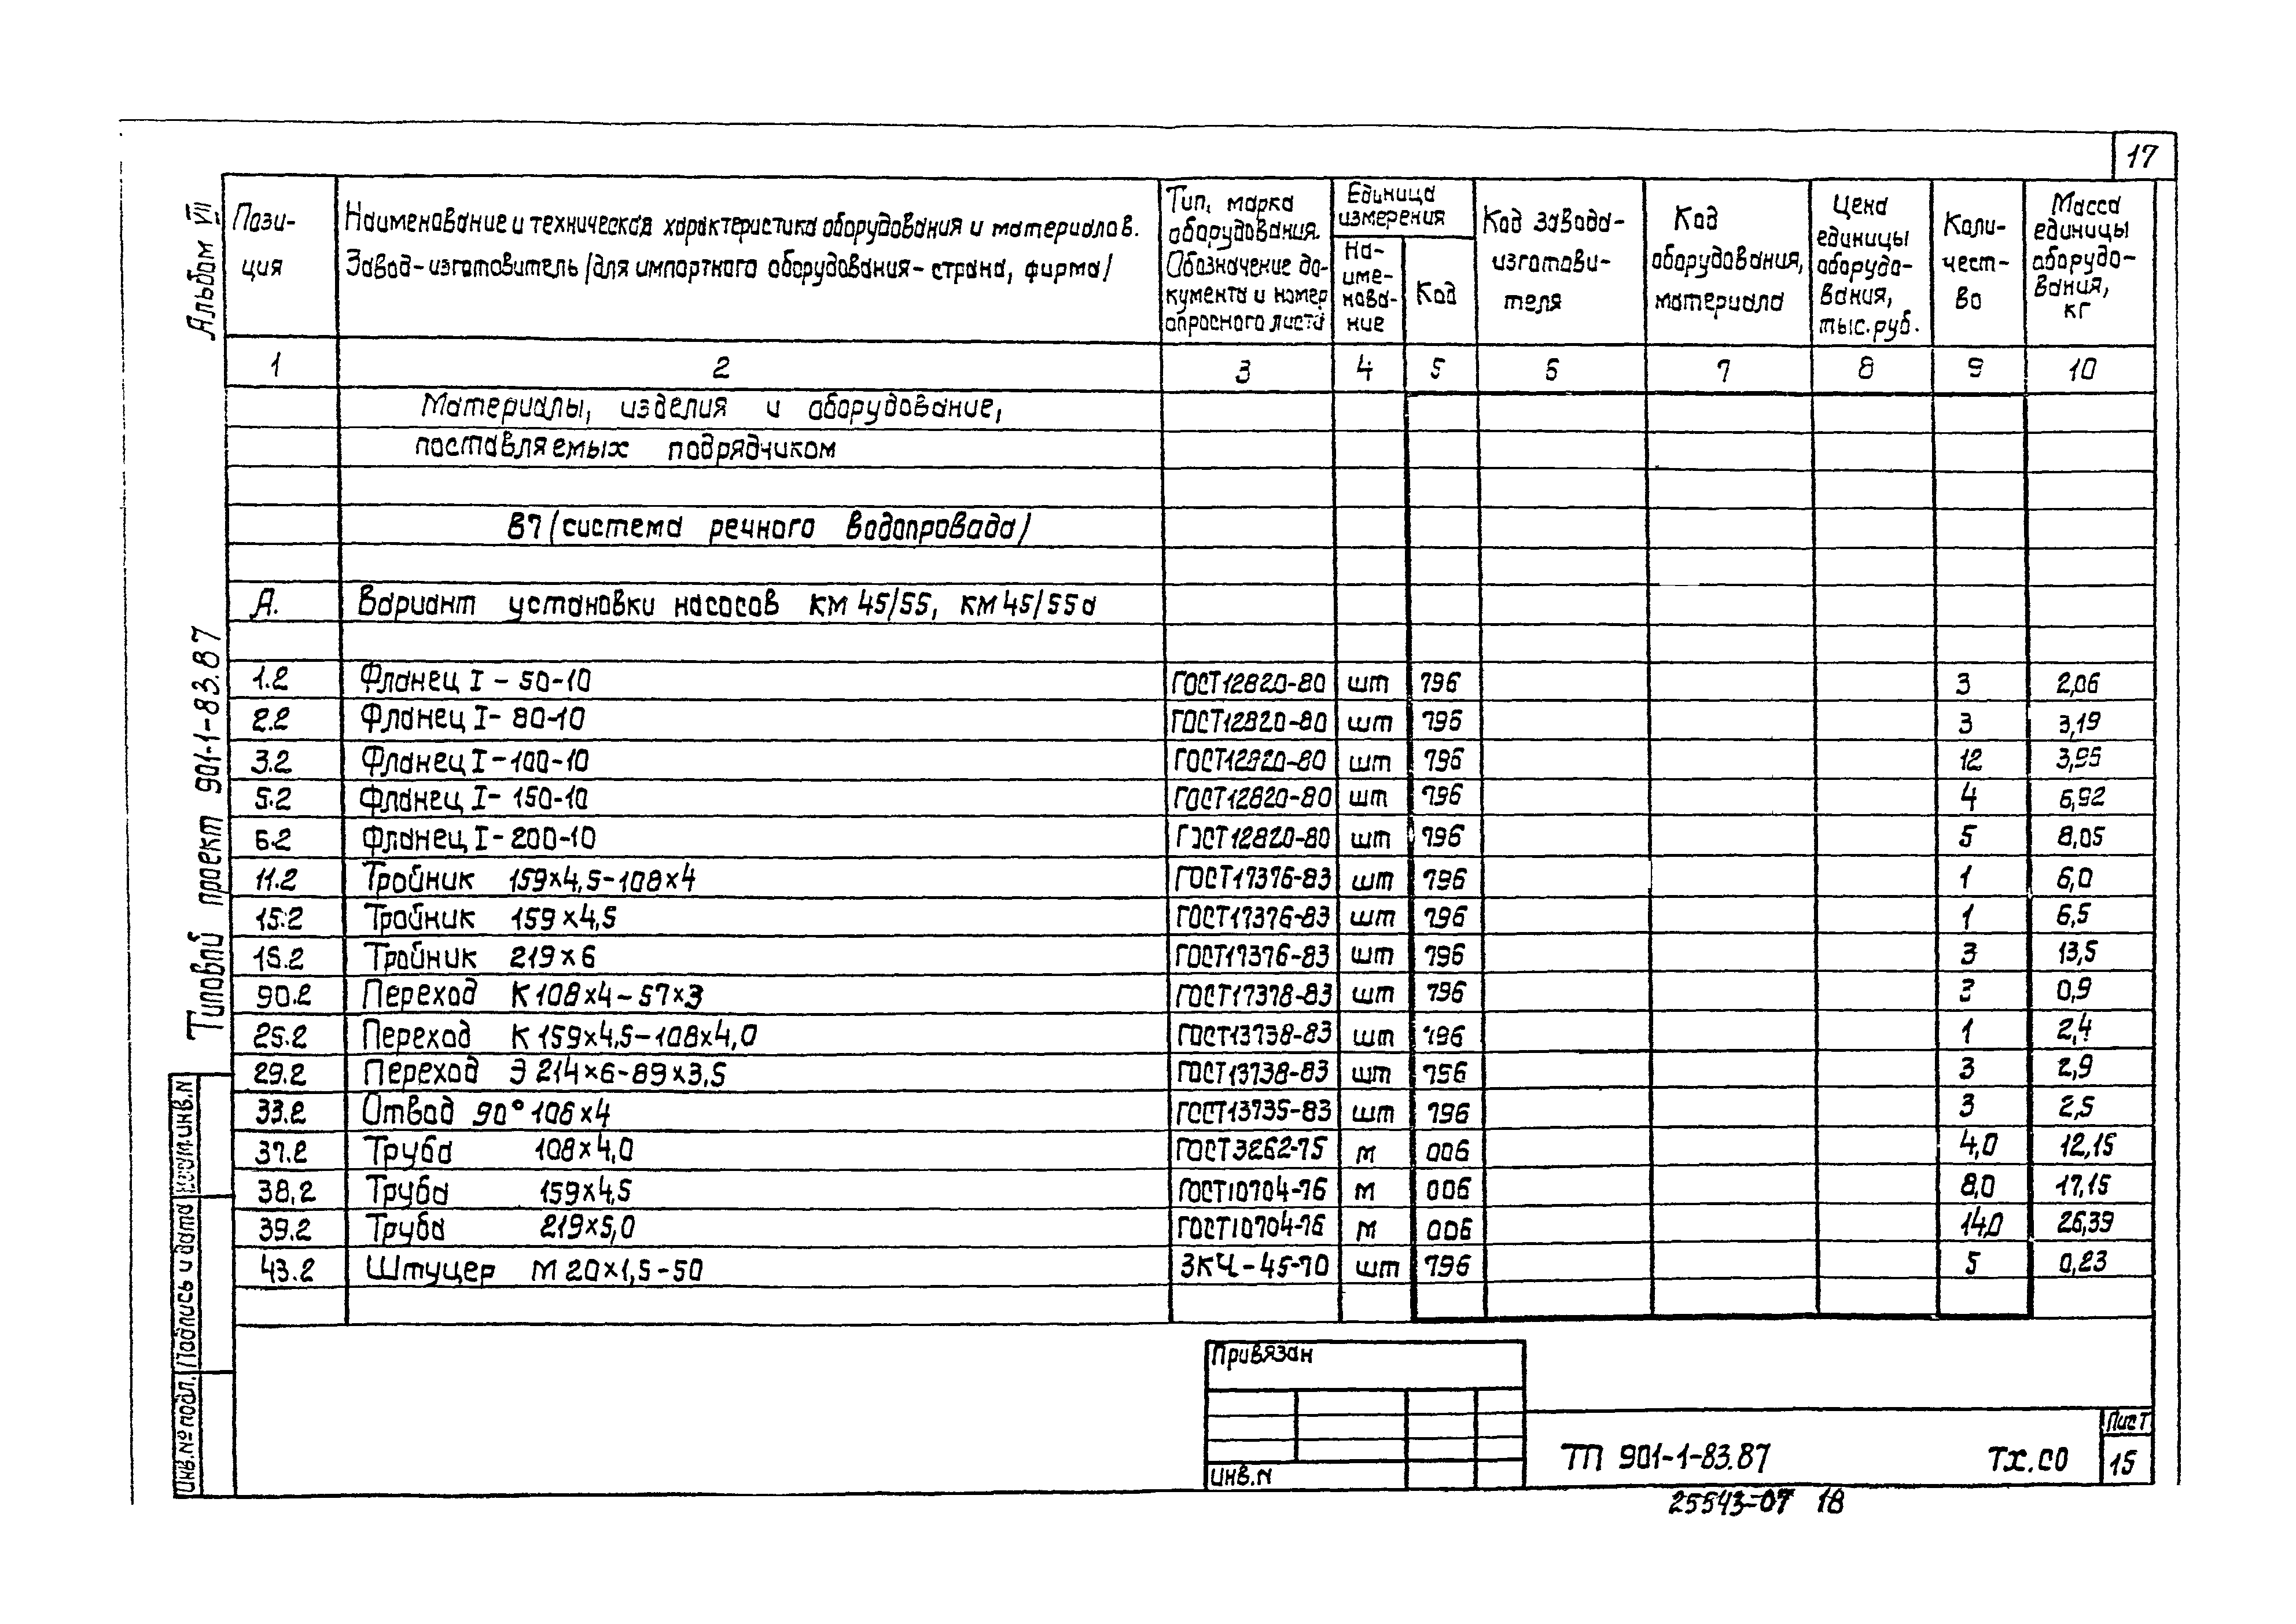 17
Альбом VII
Типовой проект 901-1-83.87
Пози-
ция
Наименование и техническая характеристика оборудования и материалов.
Завод-изготовитель /для импортного оборудования-страна, фирма/
Тип, марка
оборудования.
Обозначение до-
кумента и номер
опросного листа
Единица
измерения
На-
име-
нова-
ние
Код
Код завода-
изготови-
теля
Код
оборудования,
материала
Цена
единицы
оборудо-
вания,
тыс.руб.
Коли-
чест-
во
Масса
единицы
оборудо-
вания,
кг
1 2 3 4 5 6 7 8 9 10
Материалы, изделия и оборудование,
поставляемых подрядчиком
В7 /система речного водопровода/
А. Вариант установки насосов КМ 45/55, КМ 45/55а
1.2 Фланец I - 50-10 ГОСТ12820-80 шт 796 3 2,06
2.2 Фланец I- 80-10 ГОСТ12820-80 шт 796 3 3,19
3.2 Фланец I-100-10 ГОСТ12820-80 шт 796 12 3,95
5.2 Фланец I- 150-10 ГОСТ12820-80 шт 796 4 6,92
6.2 Фланец I-200-10 ГОСТ12820-80 шт 796 5 8,05
11.2 Тройник 159х4,5-108х4 ГОСТ17376-83 шт 796 1 6,0
15.2 Тройник 159х4,5 ГОСТ17376-83 шт 796 1 6,5
16.2 Тройник 219х6 ГОСТ17376-83 шт 796 3 13,5
90.2 Переход К 108х4-57х3 ГОСТ17378-83 шт 796 3 0,9
25.2 Переход К 159х4,5-108х4,0 ГОСТ13738-83 шт 796 1 2,4
29.2 Переход Э 214х6-89х3,5 ГОСТ13738-83 шт 796 3 2,9
33.2 Отвод 90° 108х4 ГОСТ13735-83 шт 796 3 2,5
37.2 Труба 108х4,0 ГОСТ3262-75 м 006 4,0 12,15
38.2 Труба 159х4,5 ГОСТ10704-76 м 006 8,0 17,15
39.2 Труба 219х5,0 ГОСТ10704-76 м 006 14,0 26,39
43.2 Штуцер М20х1,5-50 ЗКЧ-45-70 шт 796 5 0,23
Инв.№ подл.
Подпись и дата
инв.N
Привязан
Инв.N
ТП 901-1-83.87
ТХ.СО
Лист
15
25543-07 18